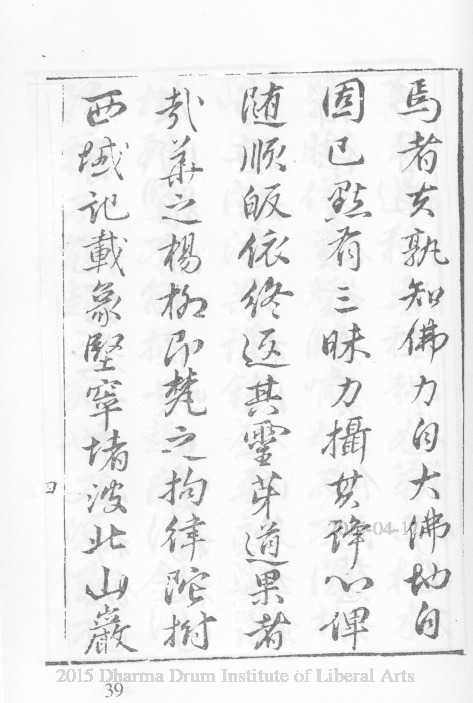 焉者矣孰知佛力自大佛地自
固已默有三昧力攝其諍心俾
隨順皈依終返其靈芽道果者
哉華之楊柳即梵之拘律陀樹
西域記載象堅窣堵波北山巖
四
39
2015 Dharma Drum Institute of Liberal Arts